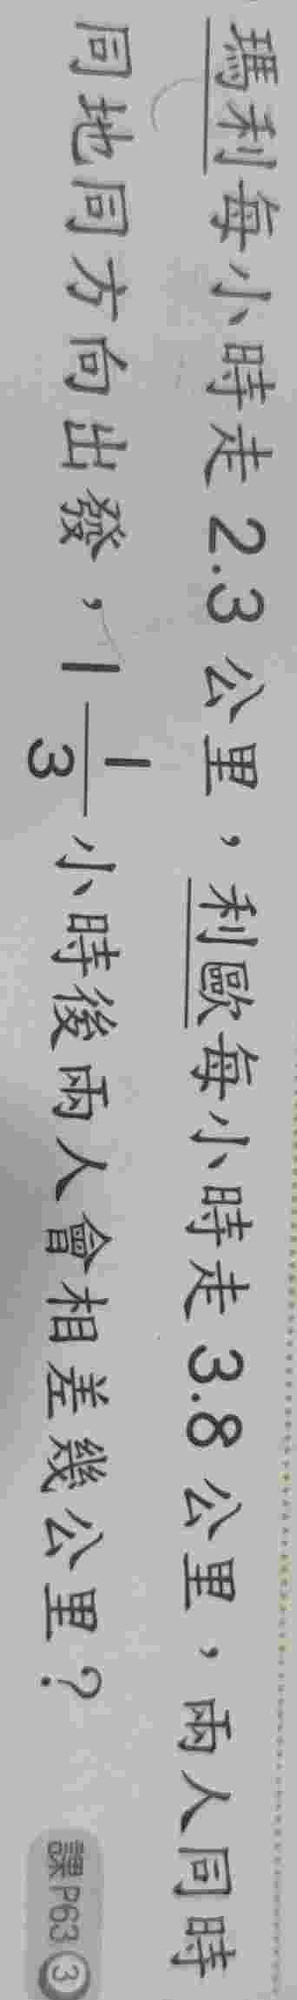 瑪利每小時走2.3公里，利歐每小時走3.8公里，兩人同時
同地同方向出發，1 1/3 小時後兩人會相差幾公里？
課P63③